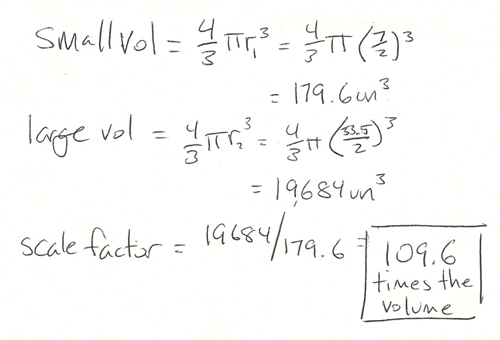 Small Vol = 4/3 πr₁³ = 4/3 π (7/2)³
= 179.6 un³
large vol = 4/3 πr₂³ = 4/3 π (33.5/2)³
= 19,684 un³
scale factor = 19684/179.6 = 109.6
times the
volume